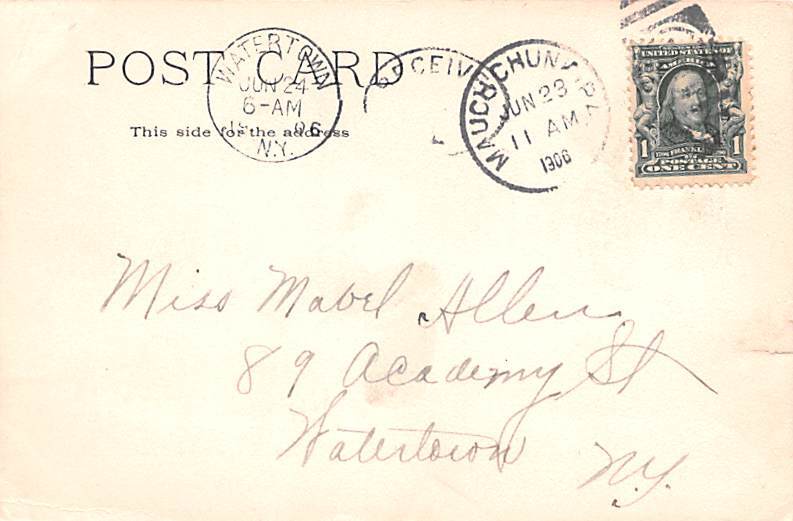 POST CARD
This side for the address
WATERTOWN
JUN 24
6-AM
N.Y.
RECEIV
MAUCH CHUNK, PA.
JUN 23
11 AM
1906
UNITED STATES OF
AMERICA
1 FRANKL 1
POSTAGE
ONE CENT
Miss Mabel Allen
89 Academy St
Watertown
N.Y.